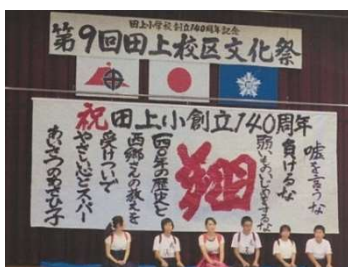 田上小学校創立140周年記念
第9回田上校区文化祭
祝田上小創立140周年
嘘を言うな
負けるな
弱いものいじめをするな
翔
140年の歴史と
西郷さんの教えを
受けついで
やさしい心とスーパー
あいさつの田上っ子